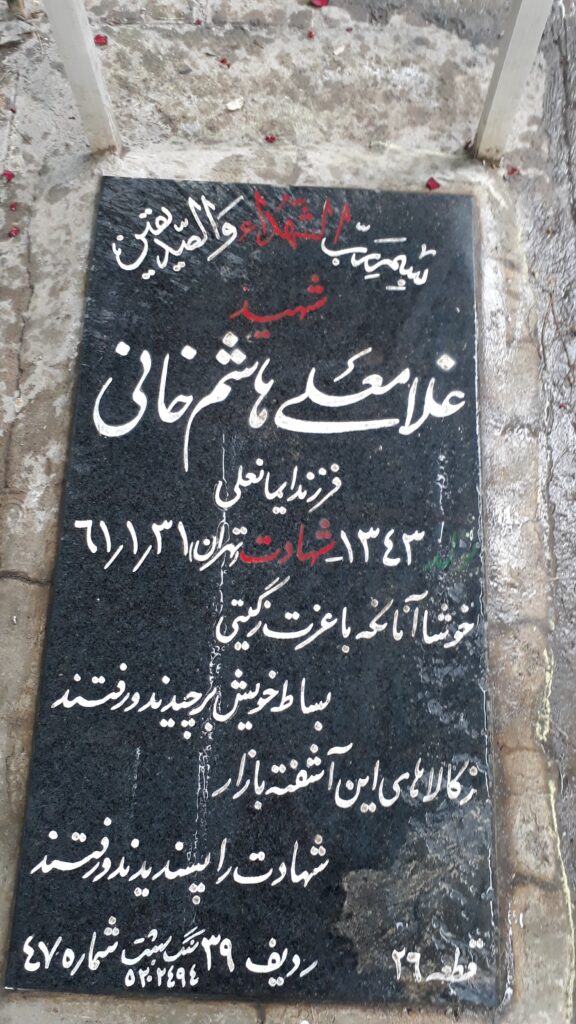 بسم رب الشهداء والصدیقین
شهید
غلامعلی هاشم خانی
فرزند ایمانعلی
تولد ۱۳۴۳_شهادت (تهران) ۶۱٫۱٫۳۱
خوشا آنانکه با عزت ز گیتی
بساط خویش برچیدند و رفتند
ز کالاهای این آشفته بازار
شهادت را پسندیدند و رفتند
قطعه ۲۹ ردیف ۳۹ سنگ بهشت شماره ۴۷
۵۲۰۲۴۹۴